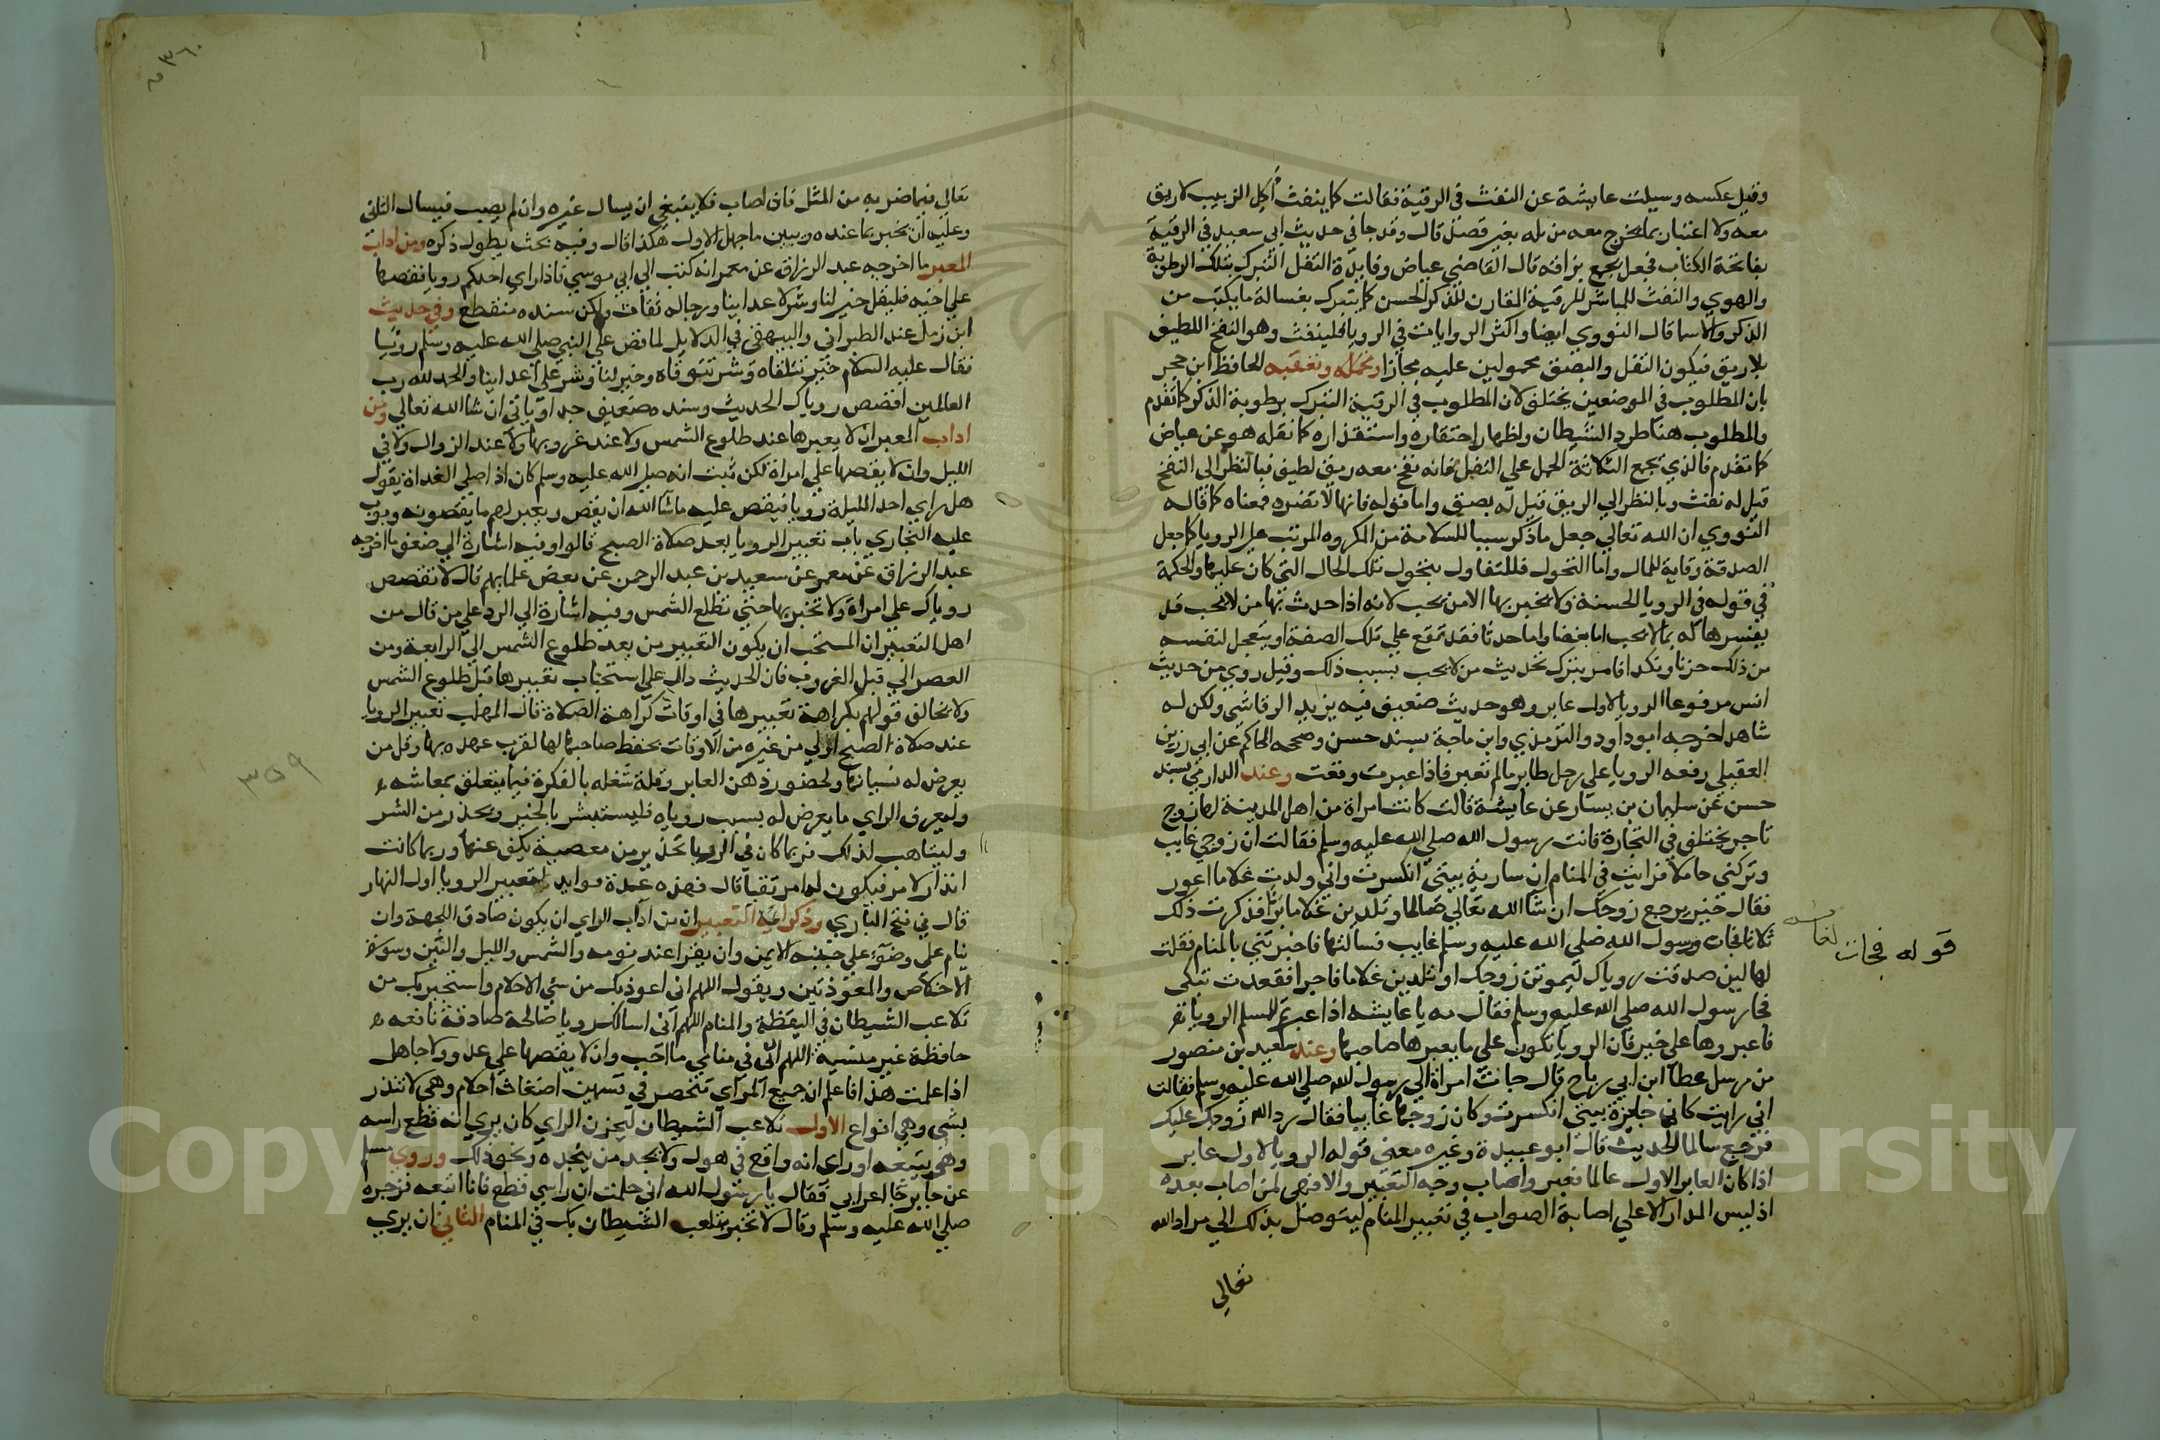 وقيل عكسه وسيلت عايشة عن النفث في الرقية فقالت كما ينفث أكل الزبيب لا ريق
معه ولا اعتبار بما يخرج معه من بله بغير قصد قال وقد جا في حديث ابي سعيد في الرقية
بفاتحة الكتاب فجعل يجمع بزاقه قال القاضي عياض وفايدة التفل التبرك بتلك الرطوبة
والهوي والنفث للمباشر للرقية المقارن للذكر الحسن كما يتبرك بغسالة ما يكتب من
الذكر والاسما قال النووي ايضا واكثر الروايات في الرويا فلينفث وهو النفخ اللطيف
بلا ريق فيكون التفل والبصق محمولين عليه مجازا وتعقبه الحافظ ابن حجر
بان المطلوب في الموضعين يختلف لان المطلوب في الرقية التبرك برطوبة الذكر كما تقدم
والمطلوب هنا طرد الشيطان واظهار احتقاره واستقذاره كما نقله هو عن عياض
كما تقدم فالذي يجمع الثلاثة الحمل علي التفل فانه نفخ معه ريق لطيف فبالنظر الي النفخ
قيل له نفث وبالنظر الي الريق قيل له بصق واما قوله فانها لا تضره فمعناه كما قاله
النووي ان الله تعالي جعل ما ذكر سببا للسلامة من المكروه المرتب علي الرويا كما جعل
الصدقة وقاية للمال واما التحول فللتفاول بتحول تلك الحال التي كان عليها والحكمة
في قوله في الرويا الحسنة ولا يخبر بها الا من يحب لانه اذا حدث بها من لا يحب قد
يفسرها له بما لا يحب اما بغضا واما حسدا فقد تقع علي تلك الصفة او يتعجل لنفسه
من ذلك حزنا ونكدا فامر بترك تحديث من لا يحب بسبب ذلك وقيل روي من حديث
انس مرفوعا الرويا لاول عابر وهو حديث ضعيف فيه يزيد الرقاشي ولكن له
شاهد اخرجه ابو داود والترمذي وابن ماجة بسند حسن وصححه الحاكم عن ابي رزين
العقيلي رفعه الرويا علي رجل طاير ما لم تعبر فاذا عبرت وقعت وعند الدارمي بسند
حسن عن سليمان بن يسار عن عايشة قالت كانت امراة من اهل المدينة لها زوج
تاجر يختلف في التجارة فاتت رسول الله صلي الله عليه وسلم فقالت ان زوجي غايب
وتركني حاملا فرايت في المنام ان سارية بيتي انكسرت واني ولدت غلاما اعور
فقال خير يرجع زوجك ان شا الله تعالي صالحا وتلدين غلاما برا فذكرت ذلك
ثلاثا فجات ورسول الله صلي الله عليه وسلم غايب فسالتها فاخبرتني بالمنام فقلت
لها لين صدقت روياك ليموتن زوجك وتلدين غلاما فاجرا فقعدت تبكي
فجا رسول الله صلي الله عليه وسلم فقال مه يا عايشه اذا عبرتم للمسلم الرويا
فاعبروها علي خير فان الرويا تكون علي ما يعبرها صاحبها وعند سعيد بن منصور
من مرسل عطا ابن ابي رباح قال جات امراة الي رسول الله صلي الله عليه وسلم فقالت
اني رايت كان جايزة بيتي انكسرت وكان زوجها غايبا فقال رد الله زوجك عليك
فرجع سالما الحديث قال ابو عبيدة وغيره معني قوله الرويا لاول عابر
اذا كان العابر الاول عالما فعبر واصاب وجه التعبير والا فهي لمن اصاب بعده
اذ ليس المدار الا علي اصابة الصواب في تعبير المنام ليتوصل بذلك الي مراد الله
تعالي
قوله فجات
تعالي فيما ضربه من المثل فان اصاب فلا ينبغي ان يسال غيره وان لم يصب فيسال الثاني
وعليه ان يخبر بما عنده ويبين ما جهل الاول هكذا قال وفيه بحث يطول ذكره ومن اداب
المعبر ما اخرجه عبد الرزاق عن معمر انه كتب الي ابي موسي فاذا راي احدكم رويا فقصها
علي اخيه فليقل خير لنا وشر لاعداينا ورجاله ثقات ولكن سنده منقطع وفي حديث
ابن زمل عند الطبراني والبيهقي في الدلايل لما قص علي النبي صلي الله عليه وسلم رويا
فقال عليه السلام خير تلقاه وشر تتوقاه وخير لنا وشر علي اعداينا والحمد لله رب
العالمين اقصص روياك الحديث وسنده ضعيف جدا وياتي ان شا الله تعالي ومن
اداب المعبر ان لا يعبرها عند طلوع الشمس ولا عند غروبها ولا عند الزوال ولا في
الليل وان لا يقصها علي امراة لكن ثبت انه صلي الله عليه وسلم كان اذا صلي الغداة يقول
هل راي احد الليلة رويا فيقص عليه ما شا الله ان يقص ويعبر لهم ما يقصونه وبوب
عليه البخاري باب تعبير الرويا بعد صلاة الصبح قالوا وفيه اشارة الي ضعف ما اخرجه
عبد الرزاق عن معمر عن سعيد بن عبد الرحمن عن بعض علمايهم قال لا تقصص
روياك علي امراة ولا تخبر بها حتي تطلع الشمس وفيه اشارة الي الرد علي من قال من
اهل التعبير ان المستحب ان يكون التعبير من بعد طلوع الشمس الي الرابعة ومن
العصر الي قبل الغروب فان الحديث دال علي استحباب تعبيرها قبل طلوع الشمس
ولا يخالف قولهم بكراهة تعبيرها في اوقات كراهة الصلاة قال المهلب تعبير الرويا
عند صلاة الصبح اولي من غيره من الاوقات لحفظ صاحبها لها لقرب عهده بها وقل من
يعرض له نسيانها ولحضور ذهن العابر وقلة شغله بالفكرة فيما يتعلق بمعاشه
وليعرف الراي ما يعرض له بسبب روياه فليستبشر بالخير ويحذر من الشر
وليتاهب لذلك فربما كان في الرويا تحذير من معصية فيكف عنها وربما كانت
انذارا لامر فيكون له مرتقبا قال فهذه عدة فوايد لتعبير الرويا اول النهار
قال في فتح الباري وذكر ايمة التعبير ان من اداب الراي ان يكون صادق اللهجة وان
ينام علي وضوء علي جنبه الايمن وان يقرا عند نومه والشمس والليل والتين وسورة
الاخلاص والمعوذتين ويقول اللهم اني اعوذ بك من سيي الاحلام واستجير بك من
تلاعب الشيطان في اليقظة والمنام اللهم اني اسالك رويا صالحة صادقة نافعه
حافظة غير منسية اللهم ارني في منامي ما احب وان لا يقصها علي عدو ولا جاهل
اذا علمت هذا فاعلم ان جميع المراي تنحصر في قسمين اضغاث احلام وهي لا تنذر
بشي وهي انواع الاول تلاعب الشيطان ليحزن الراي كان يري انه قطع راسه
وهو يتبعه او راي انه واقع في هول ولا يجد من ينجده ونحو ذلك وروي مسلم
عن جابر جا اعرابي فقال يا رسول الله اني حلمت ان راسي قطع فانا اتبعه فزجره
صلي الله عليه وسلم وقال لا تخبر بتلعب الشيطان بك في المنام الثاني ان يري
٣٥٩
٣٦٠
Copyright © King Saud University